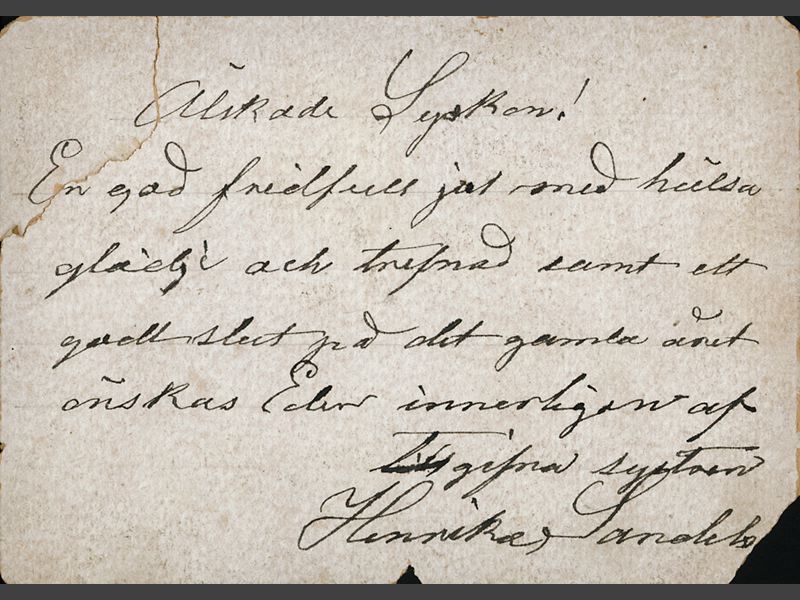 Älskade Syskon!
En god fridfull jul med hälsa
glädje och trefnad samt ett
godt slut på det gamla året
önskas Eder innerligen af
tillgifna systren
Henrika Sandels